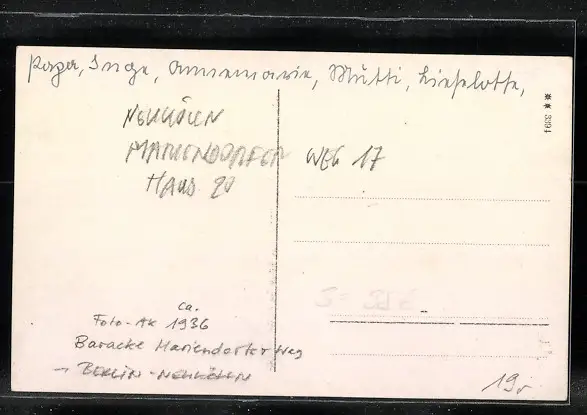 Papa, Inge, Annemarie, Mutti, Lieselotte,
** 3394
NEUKÖLLN
MARIENDORFER WEG 17
HAUS 20
ca.
Foto-AK 1936
Baracke Mariendorfer Weg
→ BERLIN-NEUKÖLLN
19,-